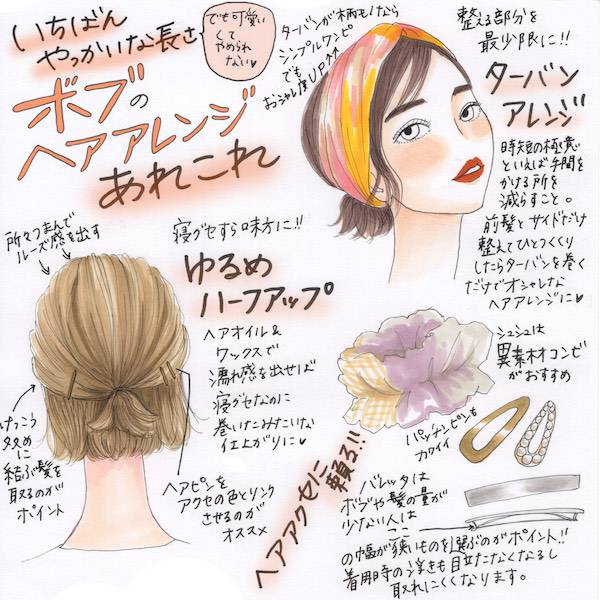 いちばん
やっかいな長さ
でも可愛い
くて
やめられ
ない♥
ボブの
ヘアアレンジ
あれこれ
ターバンが柄モノなら
シンプルワンピ
でも
オシャレ度UP↗↗
整える部分を
最少限に!!
ターバン
アレンジ
時短の極意
といえば手間を
かける所を
減らすこと。
前髪とサイドだけ
整えてひとつくくり
したらターバンを巻く
だけでオシャレな
ヘアアレンジに♥
所々つまんで
ルーズ感を出す
寝グセすら味方に!!
ゆるめ
ハーフアップ
ヘアオイル&
ワックスで
濡れ感を出せば
寝グセなのに
巻いたみたいな
仕上がりに♥
けっこう
タタめに
結ぶ髪を
取るのが
ポイント
ヘアピンを
アクセの色とリンク
させるのが
オススメ
ヘアアクセに
頼る!!
シュシュは
異素材コンビ
がおすすめ
パッチンピンも
カワイイ
バレッタは
ボブや髪の量が
少ない人は
ここ
の幅が狭いものを選ぶのがポイント!!
着用時の浮きも目立たなくなるし
取れにくくなります。